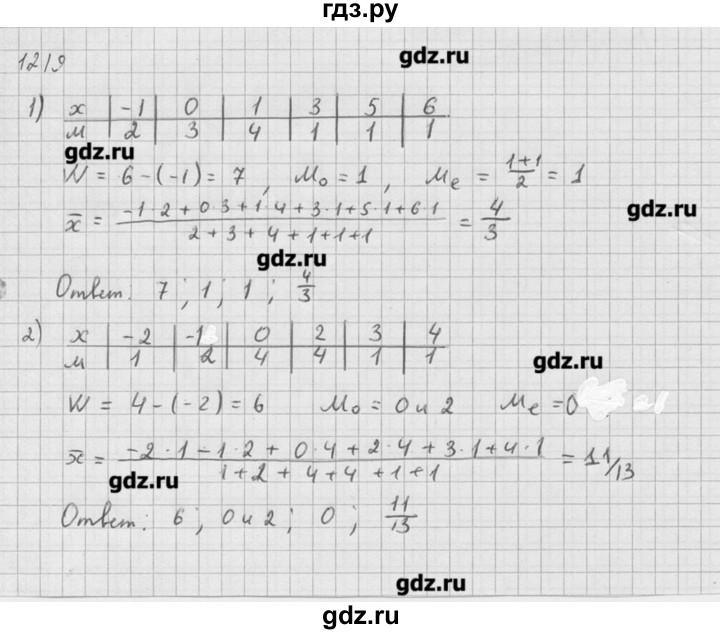 гдз.ру
gdz.ru
1219
1) x | -1 | 0 | 1 | 3 | 5 | 6
м | 2 | 3 | 4 | 1 | 1 | 1
gdz.ru
W = 6-(-1) = 7, Mo = 1, Me = (1+1)/2 = 1
gdz.ru
x̄ = (-1·2+0·3+1·4+3·1+5·1+6·1)/(2+3+4+1+1+1) = 4/3
gdz.ru
Ответ: 7; 1; 1; 4/3
2) x | -2 | -1 | 0 | 2 | 3 | 4
м | 1 | 2 | 4 | 4 | 1 | 1
gdz.ru
W = 4-(-2) = 6 Mo = 0 и 2 Me = 0
x̄ = (-2·1-1·2+0·4+2·4+3·1+4·1)/(1+2+4+4+1+1) = 11/13
gdz.ru
Ответ: 6; 0 и 2; 0; 11/13
gdz.ru
gdz.ru